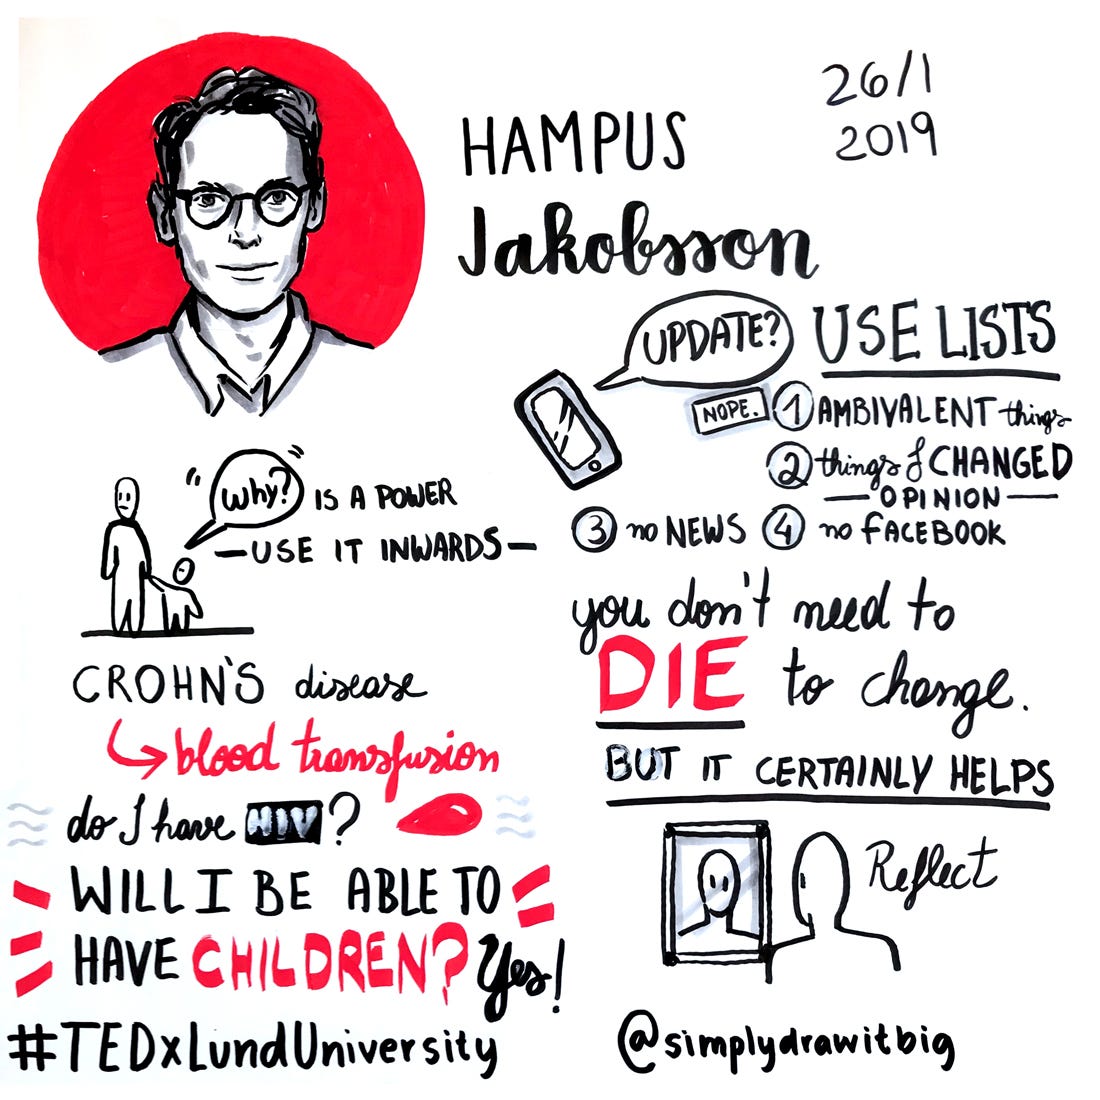 26/1
2019
HAMPUS
Jakobsson
UPDATE?
USE LISTS
NOPE.
1 AMBIVALENT things
2 things of CHANGED
— OPINION —
3 no NEWS 4 no FACEBOOK
"Why?" IS A POWER
— USE IT INWARDS —
you don't need to
DIE to change.
BUT IT CERTAINLY HELPS
CROHN'S disease
blood transfusion
do I have HIV?
WILL I BE ABLE TO
HAVE CHILDREN? Yes!
Reflect
#TEDxLundUniversity
@simplydrawitbig